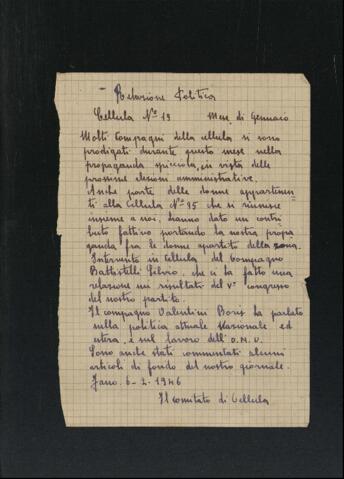 Relazione Politica
Cellula Nº 19 Mese di Gennaio
Molti Compagni della cellula si sono
prodigati durante questo mese nella
propaganda spicciola, in vista delle
prossime elezioni amministrative.
Anche parte delle donne appartenen
ti alla cellula Nº 95 che si riunisce
insieme a noi, hanno dato un contri
buto fattivo portando la nostra propa
ganda fra le donne apartito della zona.
Intervento in Cellula del Compagno
Battistelli Silvio, che ci ha fatto una
relazione sui risultati del Vº congresso
del nostro partito.
Il compagno Valentini Boris ha parlato
sulla politica attuale Nazionale ed
estera, e sul lavoro dell'O.N.U.
Sono anche stati commentati alcuni
articoli di fondo del nostro giornale.
Fano. 6-2-1946
Il Comitato di Cellula